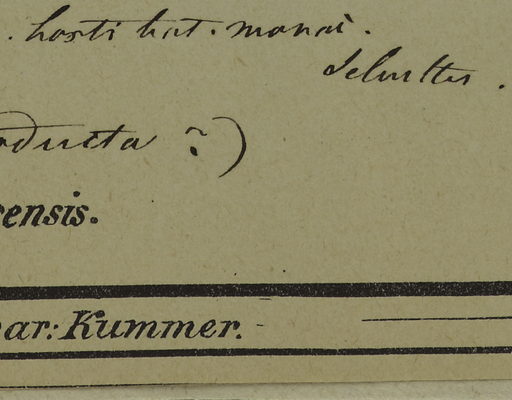 . horti bot. monac.
Schultes.
ducta ?)
ensis.
ar: Kummer.